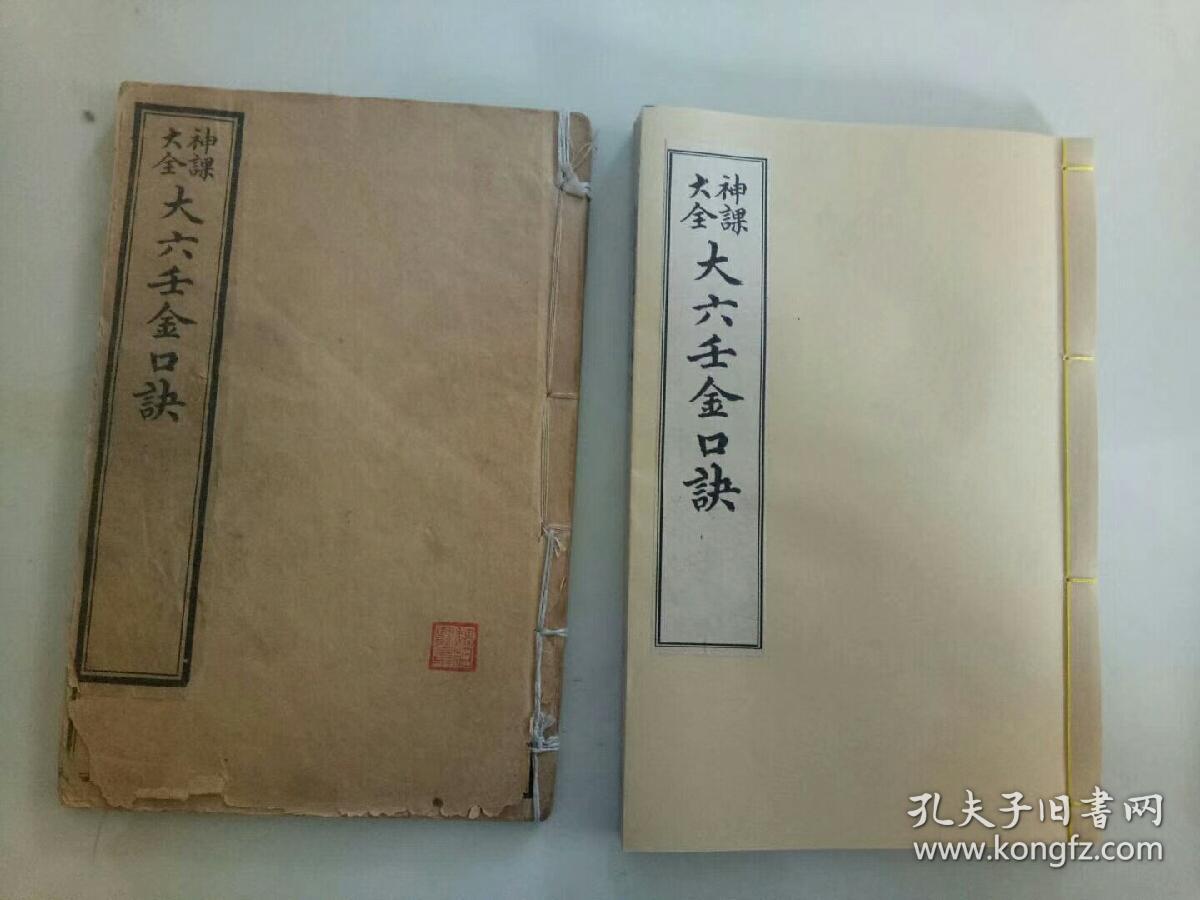 神課
大全
大六壬金口訣
神課
大全
大六壬金口訣
孔夫子旧书网
www.kongfz.com